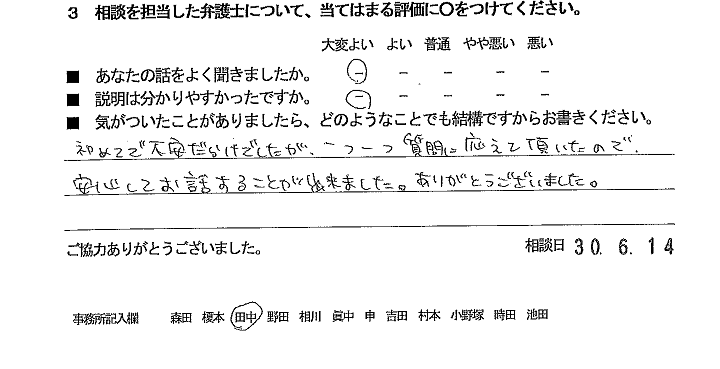 3 相談を担当した弁護士について、当てはまる評価に〇をつけてください。
大変よい よい 普通 やや悪い 悪い
■ あなたの話をよく聞きましたか。 － － － － －
■ 説明は分かりやすかったですか。 － － － － －
■ 気がついたことがありましたら、どのようなことでも結構ですからお書きください。
初めてで不安だらけでしたが、一つ一つ質問に応えて頂いたので、
安心してお話することが出来ました。ありがとうございました。
ご協力ありがとうございました。 相談日 30. 6. 14
事務所記入欄 森田 榎本 田中 野田 相川 眞中 申 吉田 村本 小野塚 時田 池田